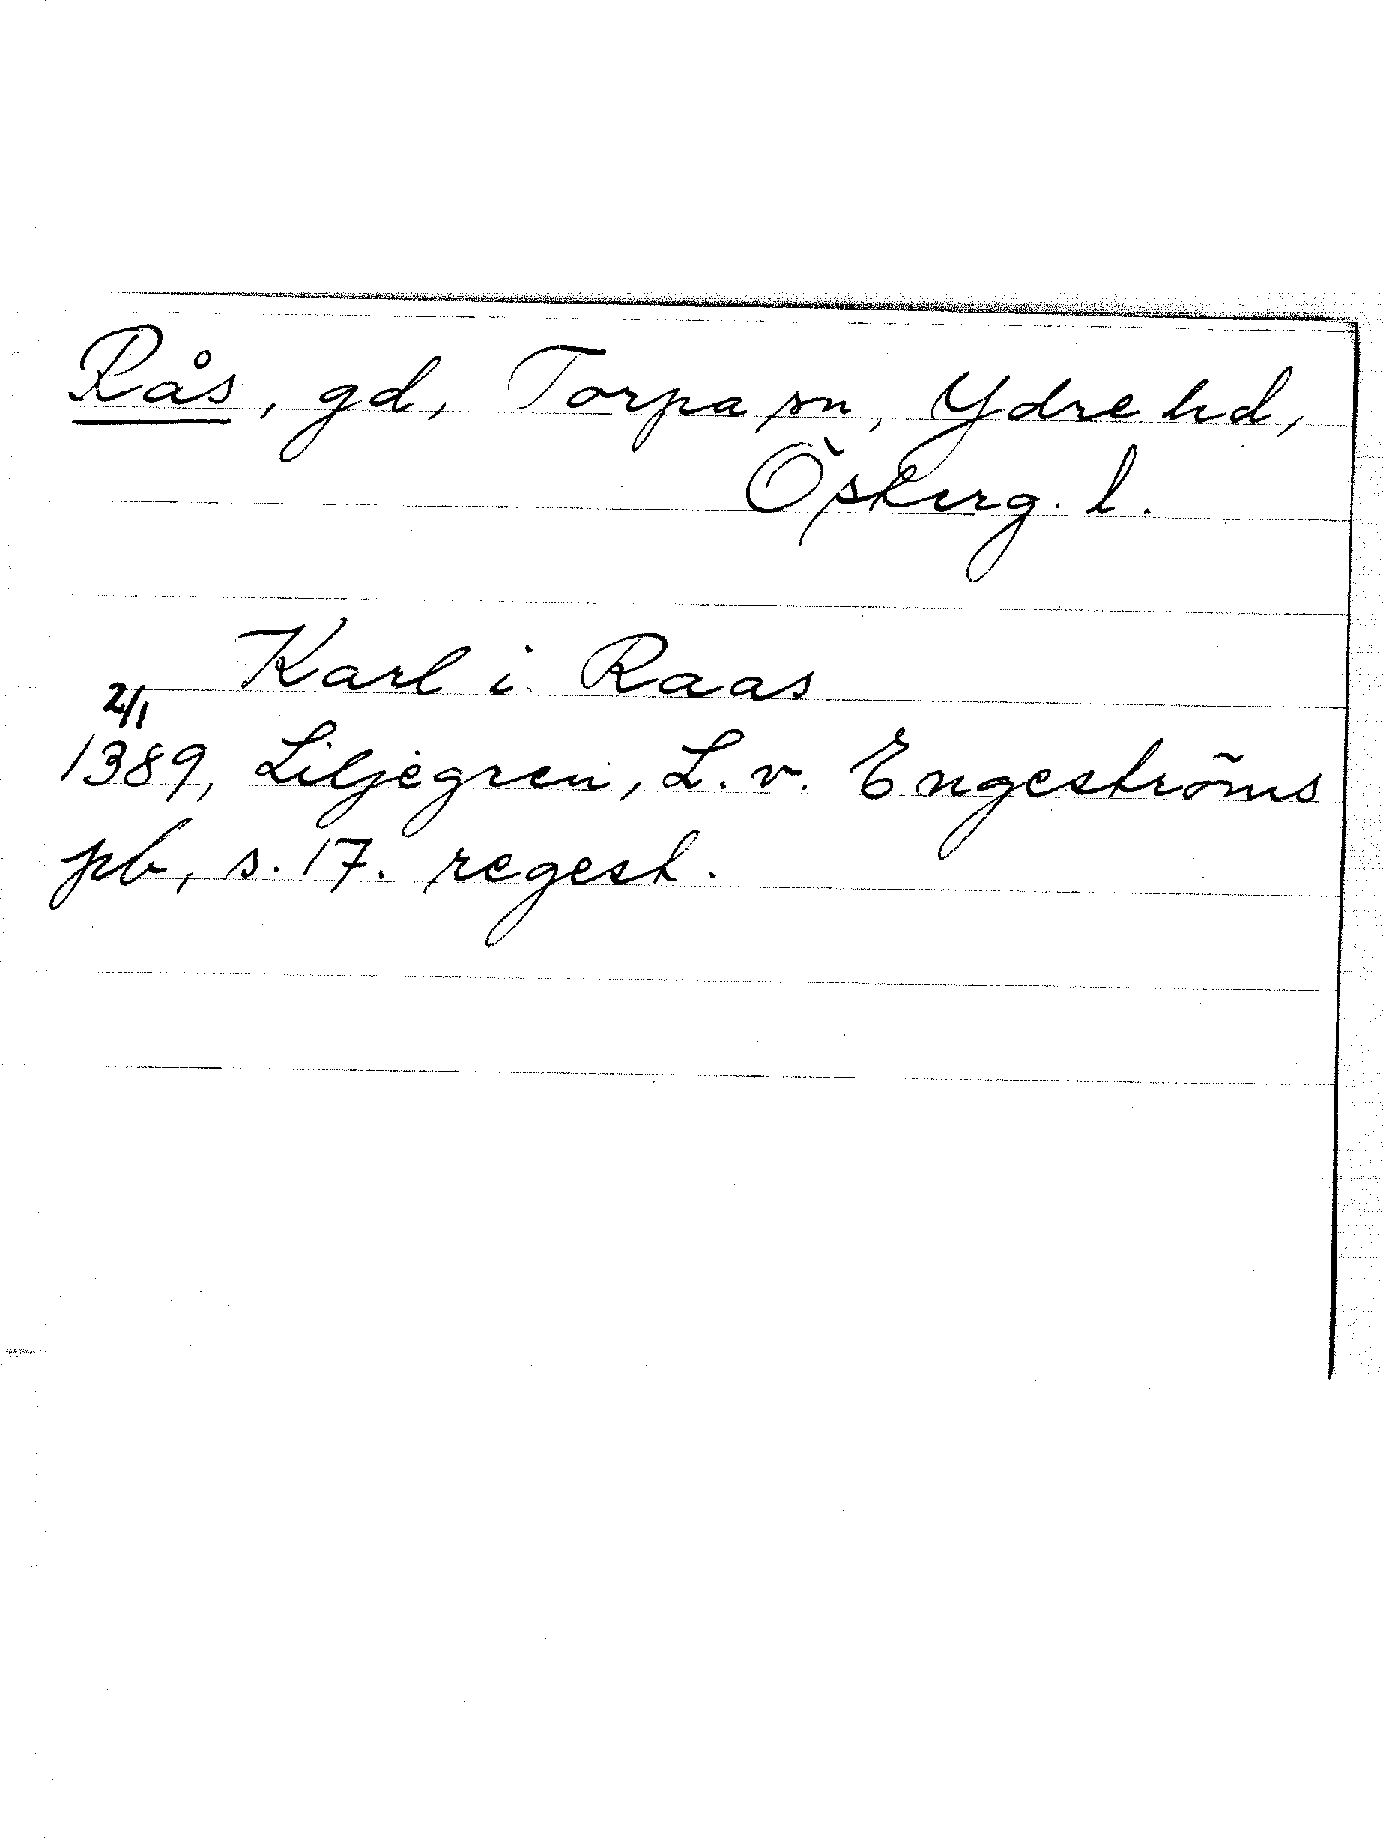 Rås, gd, Torpa sn, Ydre hd,
Österg. l.
Karl i Raas
2/1
1389, Liljegren, L. v. Engeströms
pb, s. 17. regest.